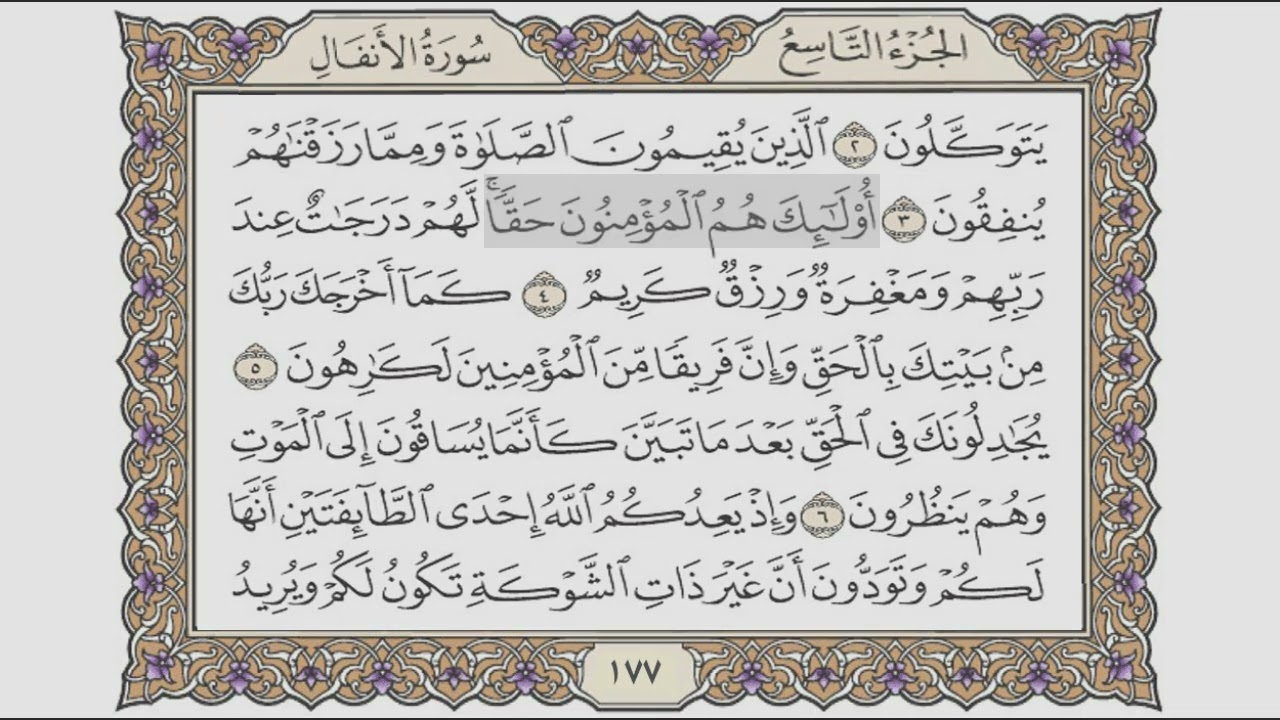 الجُزْءُ التَّاسِعُ
سُورَةُ الأَنفَالِ
يَتَوَكَّلُونَ ٢ ٱلَّذِينَ يُقِيمُونَ ٱلصَّلَوٰةَ وَمِمَّا رَزَقْنَٰهُمْ
يُنفِقُونَ ٣ أُو۟لَٰٓئِكَ هُمُ ٱلْمُؤْمِنُونَ حَقًّا ۚ لَّهُمْ دَرَجَٰتٌ عِندَ
رَبِّهِمْ وَمَغْفِرَةٌ وَرِزْقٌ كَرِيمٌ ٤ كَمَآ أَخْرَجَكَ رَبُّكَ
مِنۢ بَيْتِكَ بِٱلْحَقِّ وَإِنَّ فَرِيقًا مِّنَ ٱلْمُؤْمِنِينَ لَكَٰرِهُونَ ٥
يُجَٰدِلُونَكَ فِى ٱلْحَقِّ بَعْدَ مَا تَبَيَّنَ كَأَنَّمَا يُسَاقُونَ إِلَى ٱلْمَوْتِ
وَهُمْ يَنظُرُونَ ٦ وَإِذْ يَعِدُكُمُ ٱللَّهُ إِحْدَى ٱلطَّآئِفَتَيْنِ أَنَّهَا
لَكُمْ وَتَوَدُّونَ أَنَّ غَيْرَ ذَاتِ ٱلشَّوْكَةِ تَكُونُ لَكُمْ وَيُرِيدُ
١٧٧